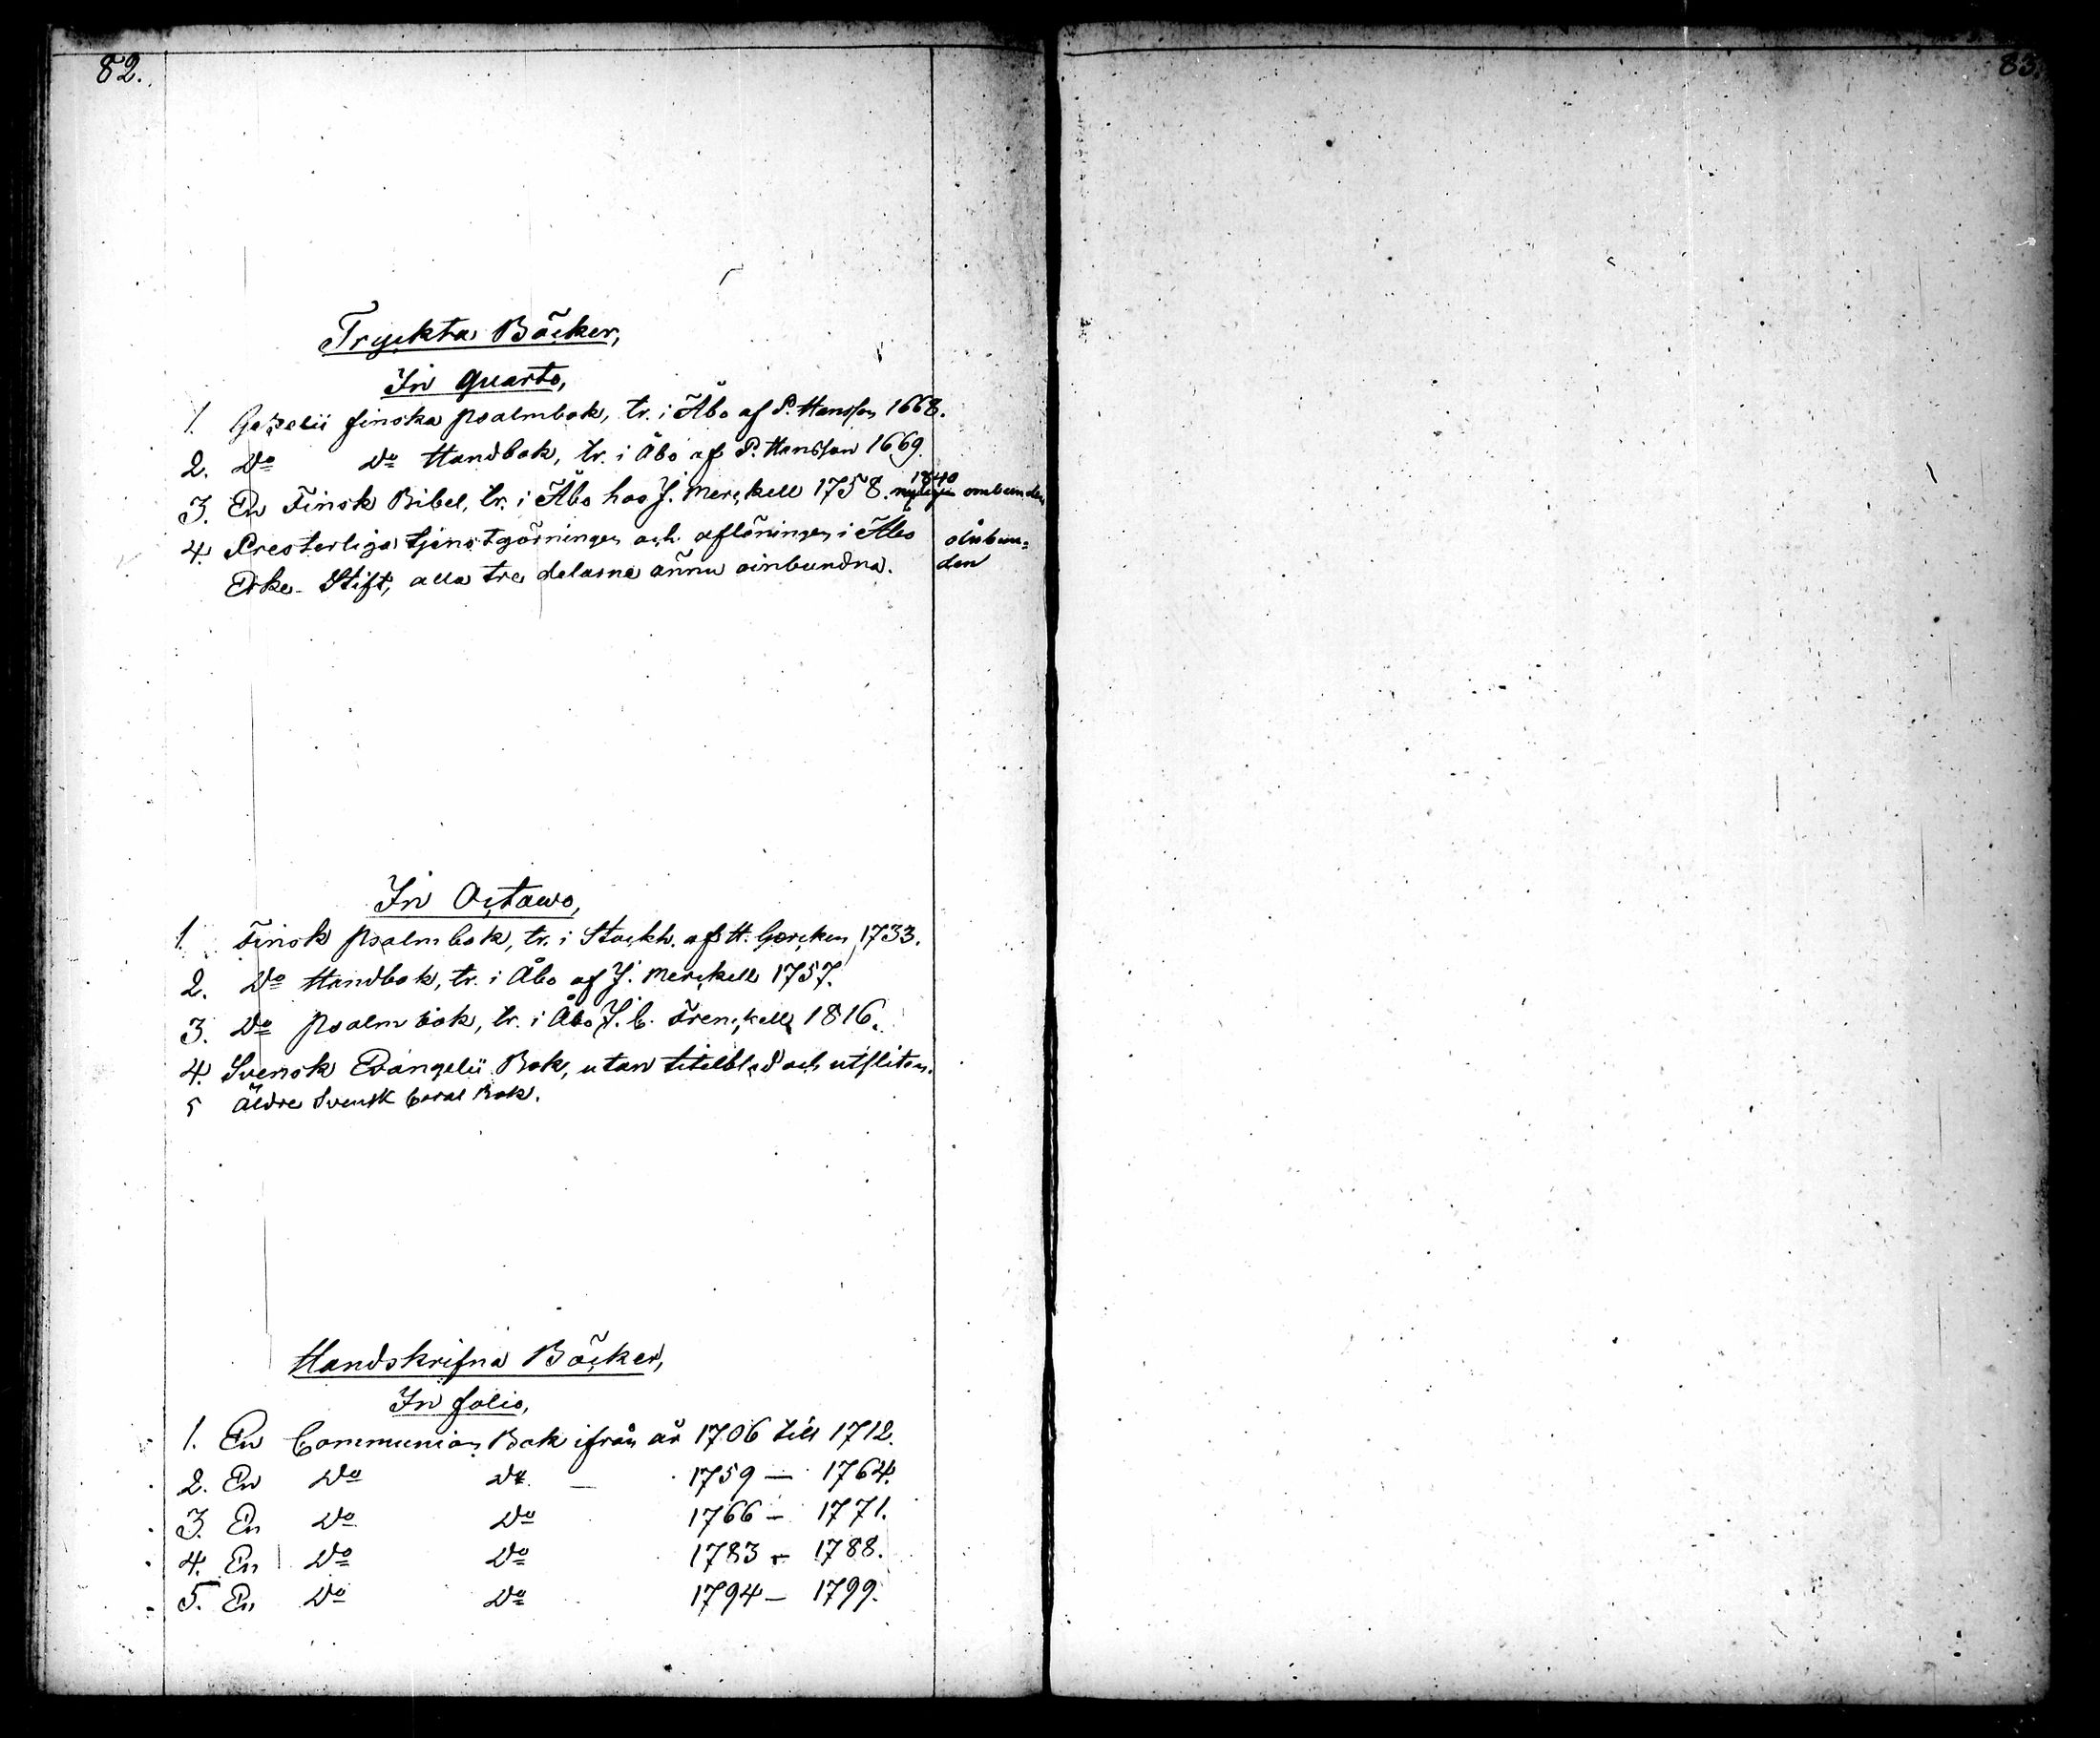 82.
83.
Tryckta Böcker,
In quarto,
1. Gezelii finska psalmbok, tr. i Åbo af P. Hansson 1668.
2. Do Do Handbok, tr. i Åbo af P. Hansson 1669.
3. En Finsk Bibel, tr. i Åbo hos J. Merckell 1758. nyligen 1840 ombunden
4. Presterliga tjenstgörningen och aflöningen i Åbo
Erke-Stift, alla tre delarne ännu oinbundna.
oinbun=
den
In Octavo,
1. Finsk psalmbok, tr. i Stockh. af H. Gercken 1733.
2. Do Handbok, tr. i Åbo af J. Merckell 1757.
3. Do psalmbok, tr. i Åbo J. C. Frenckell 1816.
4. Svensk Evangelii Bok, utan titelblad och utsliten.
5 Äldre Svensk Coral Bok.
Handskrifna Böcker,
In folio,
1. En Communion Bok ifrån år 1706 till 1712.
2. En Do Do — 1759 — 1764.
3. En Do Do 1766 — 1771.
4. En Do Do 1783 — 1788.
5. En Do Do 1794 — 1799.